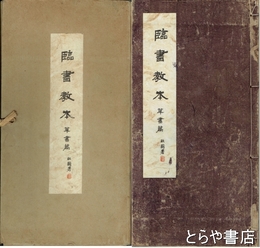 臨書教本
草書篇
臨書教本
草書篇
とらや書店